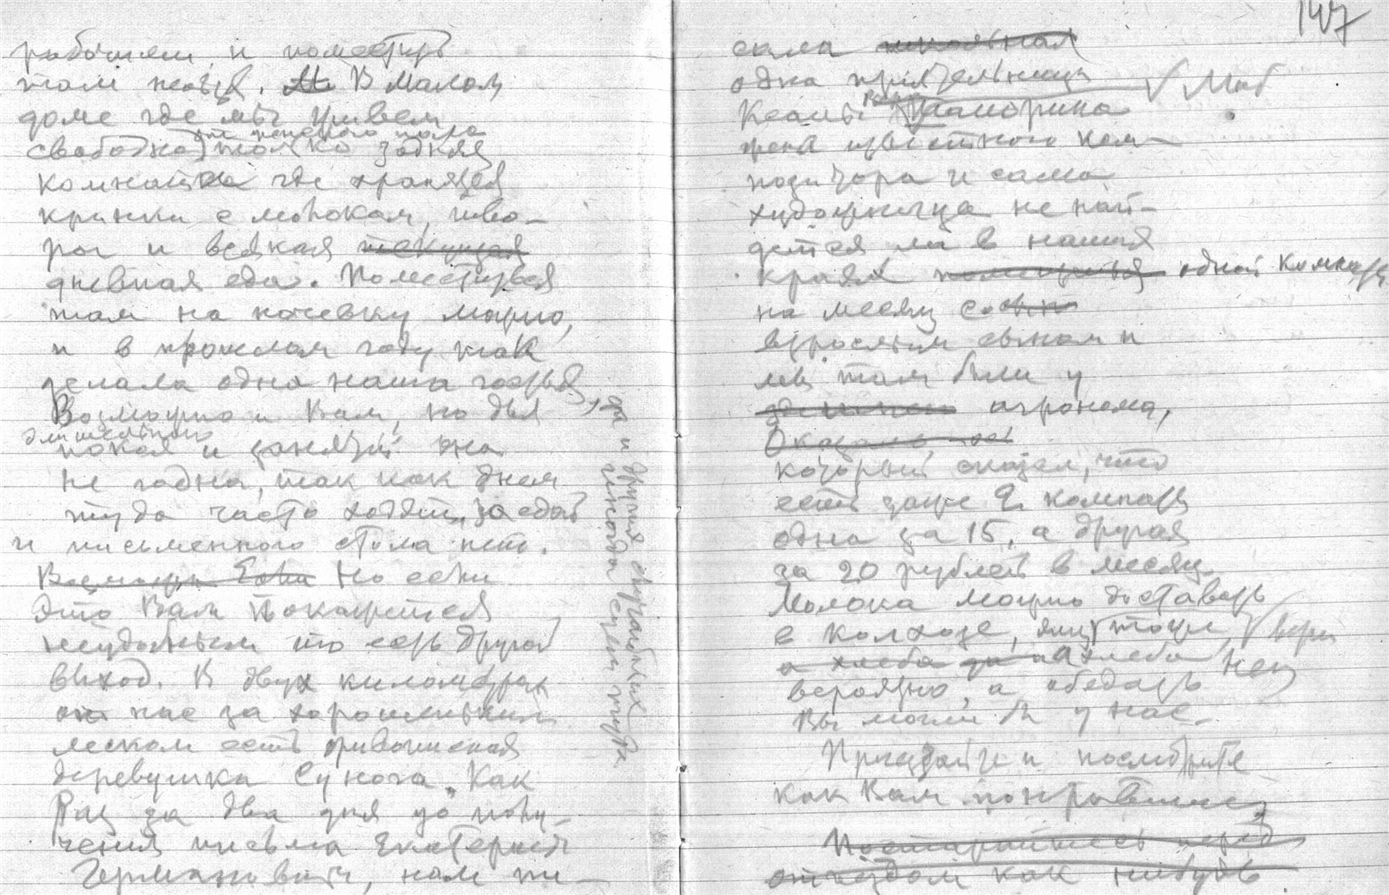 рабочим и поместить
там нельзя. В малом
доме где мы живем
свободна только задняя
комнатка где хранятся
кринки с молоком, тво-
рог и всякая текущая
дневная еда. Поместиться
там на ночевку можно,
и в прошлом году так
делала одна наша гостья,
Возможно и Вам, но для
длительного
покоя и занятий она
не годна, так как днем
туда часто ходят за едой
и письменного стола нет.
Но если
Это Вам покажется
неудобным то есть другой
выход. В двух километрах
от нас за хорошеньким
леском есть живописная
деревушка Сунога. Как
Раз за два дня до полу-
чения письма Екатерины
Германовны, нам пи-
да и других съедобных
147
сала школьная
одна приятельница
Ксаны
жена известного ком-
позитора и сама
художница не най-
дется ли в наших
краях помещения одной комнаты
на месяц
взрослым сыном и
там были у
агронома,
который сказал, что
есть даже 2 комнаты
одна за 15, а другая
за 20 рублей в месяц.
Молока можно доставать
в колхозе, яиц тоже,
а хлеба нет
вероятно, а обедать
Вы могли бы у нас.
Приезжайте и посмотрите
как Вам понравится
Постарайтесь перед
отъездом как нибудь